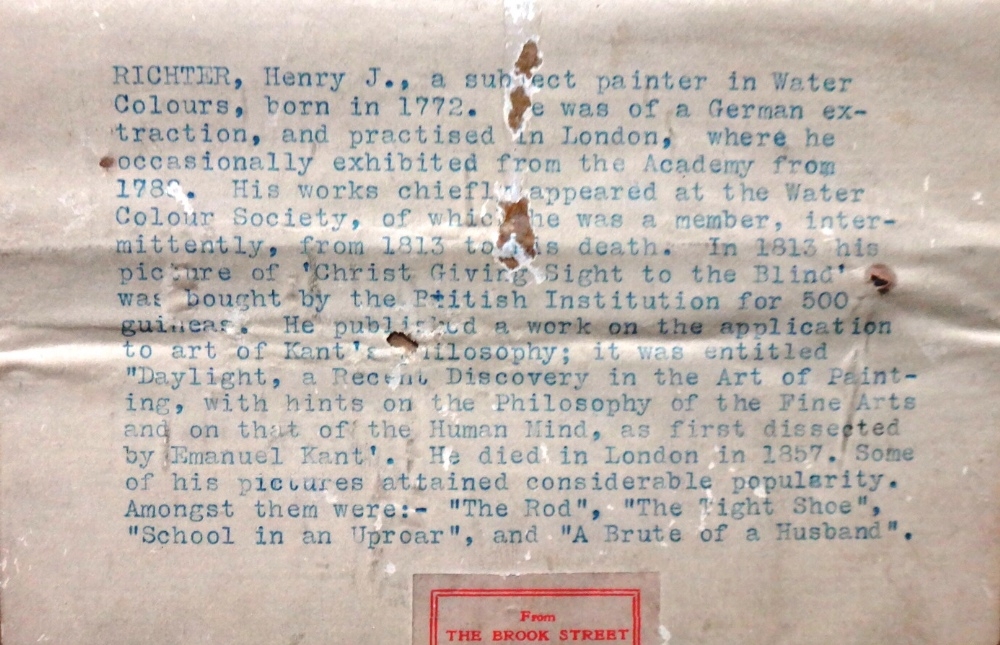 RICHTER, Henry J., a subject painter in Water
Colours, born in 1772. He was of a German ex-
traction, and practised in London, where he
occasionally exhibited from the Academy from
His works chiefly appeared at the Water
Colour Society, of which he was a member, inter-
mittently, from 1813 to his death. In 1813 his
picture of 'Christ Giving Sight to the Blind'
was bought by the British Institution for 500
guineas. He published a work on the application
to art of Kant's Philosophy; it was entitled
"Daylight, a Recent Discovery in the Art of Paint-
ing, with hints on the Philosophy of the Fine Arts
and on that of the Human Mind, as first dissected
by Emanuel Kant'. He died in London in 1857. Some
of his pictures attained considerable popularity.
Amongst them were:- "The Rod", "The Tight Shoe",
"School in an Uproar", and "A Brute of a Husband".
From
THE BROOK STREET